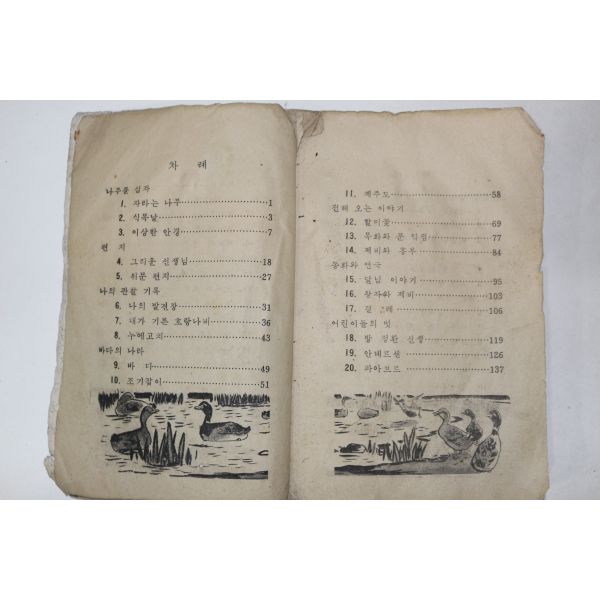 차 례
나무를 심자
1. 자라는 나무 1
2. 식목날 3
3. 이상한 안경 7
편 지
4. 그리운 선생님 18
5. 위문 편지 27
나의 관찰 기록
6. 나의 발견장 31
7. 내가 기른 호랑나비 36
8. 누에고치 43
바다의 나라
9. 바 다 49
10. 조기잡이 51
11. 제주도 58
전해 오는 이야기
12. 할미꽃 69
13. 목화와 문 익점 77
14. 제비와 흥부 84
동화와 연극
15. 달님 이야기 95
16. 왕자와 제비 103
17. 걸레 106
어린이들의 벗
18. 방 정환 선생 119
19. 안데르센 126
20. 파아브르 137